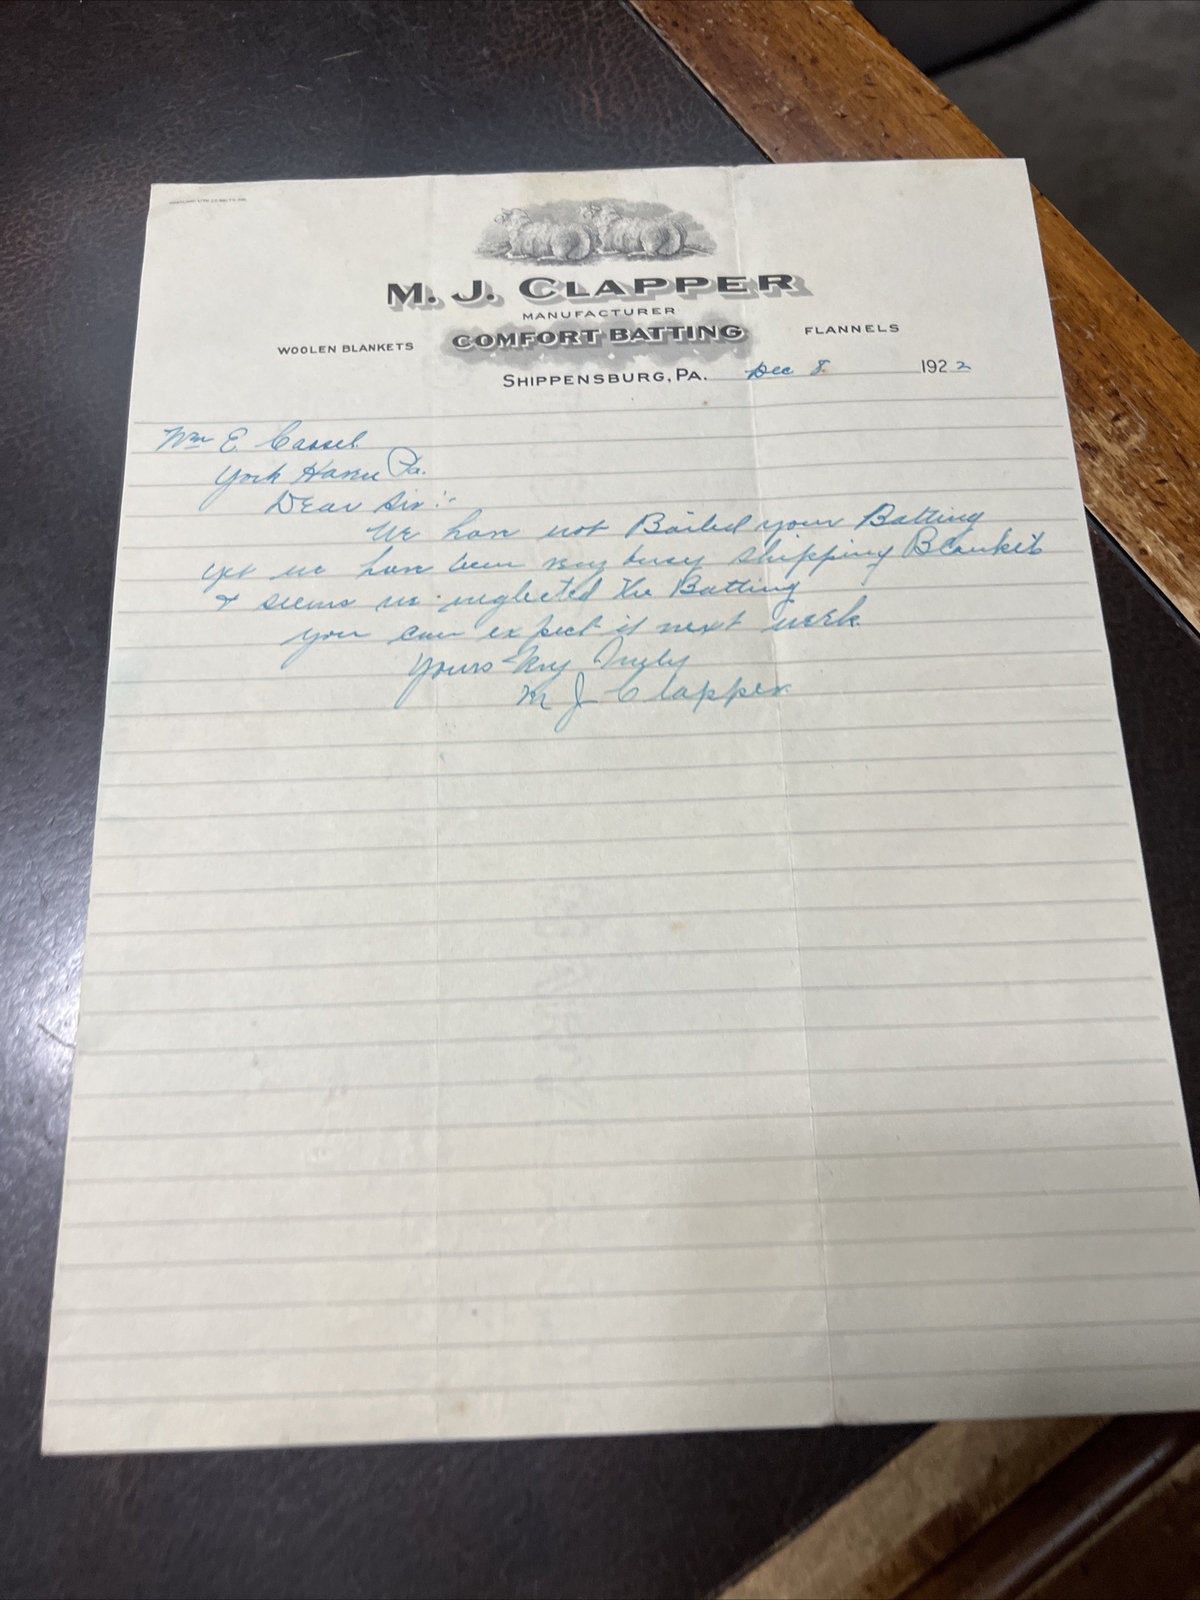 M. J. CLAPPER
MANUFACTURER
WOOLEN BLANKETS COMFORT BATTING FLANNELS
SHIPPENSBURG, PA. Dec 8. 1922
Wm E. Cassel
York Haven Pa.
Dear Sir:-
We have not Bailed your Batting
yet we have been very busy shipping Blankets
& seems we neglected the Batting
you can expect it next week
Yours Very Truly
M J Clapper